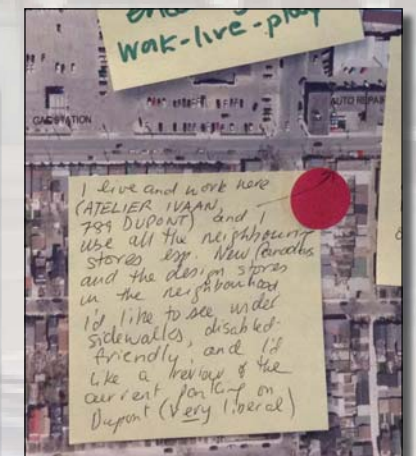 work-live-play
AUTO REPAIR
GAS STATION
I live and work here
(ATELIER IVAAN,
789 DUPONT) and I
use all the neighbouring
stores esp. New Canadians
and the design stores
in the neighbourhood
I'd like to see wider
sidewalks, disabled-
friendly, and I'd
like a review of the
current parking on
Dupont (very liberal)